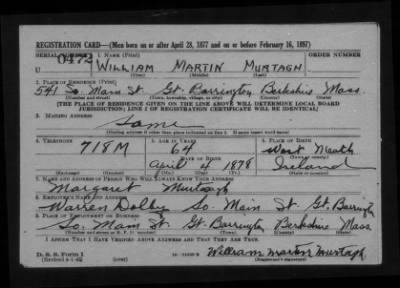 REGISTRATION CARD—(Men born on or after April 28, 1877 and on or before February 16, 1897)
SERIAL NUMBER 1. NAME (Print) ORDER NUMBER
0472
U WILLIAM MARTIN MURTAGH
(First) (Middle) (Last)
2. PLACE OF RESIDENCE (Print)
541 So. Main St. Gt. Barrington Berkshire Mass.
(Number and street) (Town, township, village, or city) (County) (State)
[THE PLACE OF RESIDENCE GIVEN ON THE LINE ABOVE WILL DETERMINE LOCAL BOARD
JURISDICTION; LINE 2 OF REGISTRATION CERTIFICATE WILL BE IDENTICAL]
3. MAILING ADDRESS
Same
(Mailing address if other than place indicated on line 2. If same insert word same)
4. TELEPHONE 5. AGE IN YEARS 6. PLACE OF BIRTH
718M 64 West Meath
DATE OF BIRTH (Town or county)
April 4 1878 Ireland
(Exchange) (Number) (Mo.) (Day) (Yr.) (State or country)
7. NAME AND ADDRESS OF PERSON WHO WILL ALWAYS KNOW YOUR ADDRESS
Margaret Murtagh
8. EMPLOYER'S NAME AND ADDRESS
Warren Dolby So. Main St Gt. Barrington
9. PLACE OF EMPLOYMENT OR BUSINESS
So. Main St. Gt. Barrington Berkshire Mass.
(Number and street or R. F. D. number) (Town) (County) (State)
I AFFIRM THAT I HAVE VERIFIED ABOVE ANSWERS AND THAT THEY ARE TRUE.
D. S. S. Form 1
(Revised 4-1-42) (over) William Martin Murtagh
(Registrant's signature)